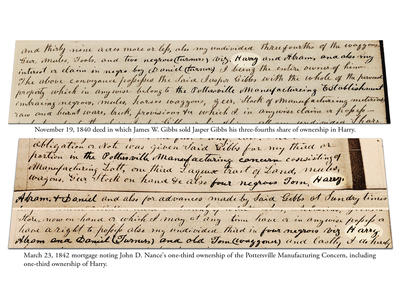 and thirty nine acres more or less, also my undivided three fourths of the waggons
Geer, Mules, Tools, and two negroes (turners) viz, Harry and Abram, and also my
interest or claim in negro boy Daniel (turner) I being the entire owner of him.
The above conveyance possesses the said Jasper Gibbs with the whole of the
property which in anywise belong to the Pottersville Manufacturing Establishment
embracing negroes, mules, horses waggons, geer, Stock of Manufacturing materials
raw and burnt ware, brick, provisions &c which d in anywise claim or
November 19, 1840 deed in which James W. Gibbs sold Jasper Gibbs his three-fourths share of ownership in Harry.
obligation or Note was given Said Gibbs for my third or
portion in the Pottersville Manufacturing concern consisting of
Manufacturing Lott, one third Tract of Land, mules,
wagons, Geer Stock on hand & also four negroes Tom, Harry,
Abram & Daniel and also for advances made by Said Gibbs at Sundry times
Store, now on hand or which I may at any time have or in anywise possess or
have a right to possess also my undivided third in four negroes viz Harry
Abram and Daniel (Turners) and old Tom (waggoner) and lastly I do hereby
March 23, 1842 mortgage noting John D. Nance's one-third ownership of the Pottersville Manufacturing Concern, including
one-third ownership of Harry.